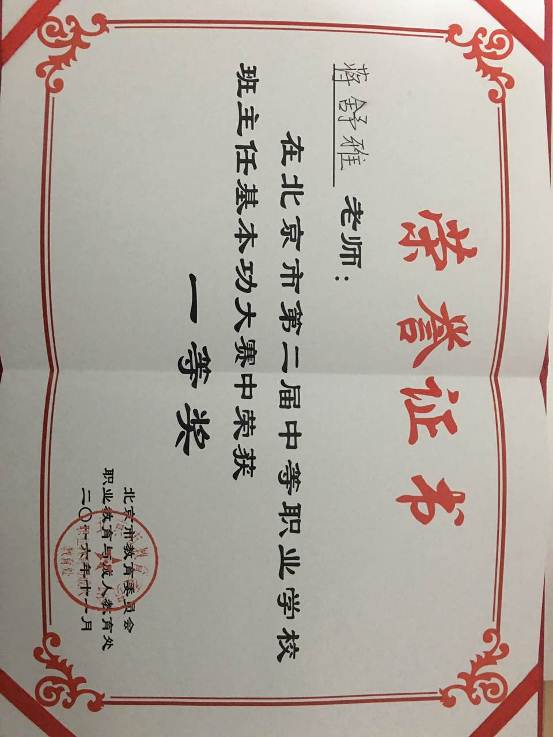 荣誉证书
蒋舒雅 老师：
在北京市第二届中等职业学校
班主任基本功大赛中荣获
一等奖
北京市教育委员会
职业教育与成人教育处
二〇一六年十一月